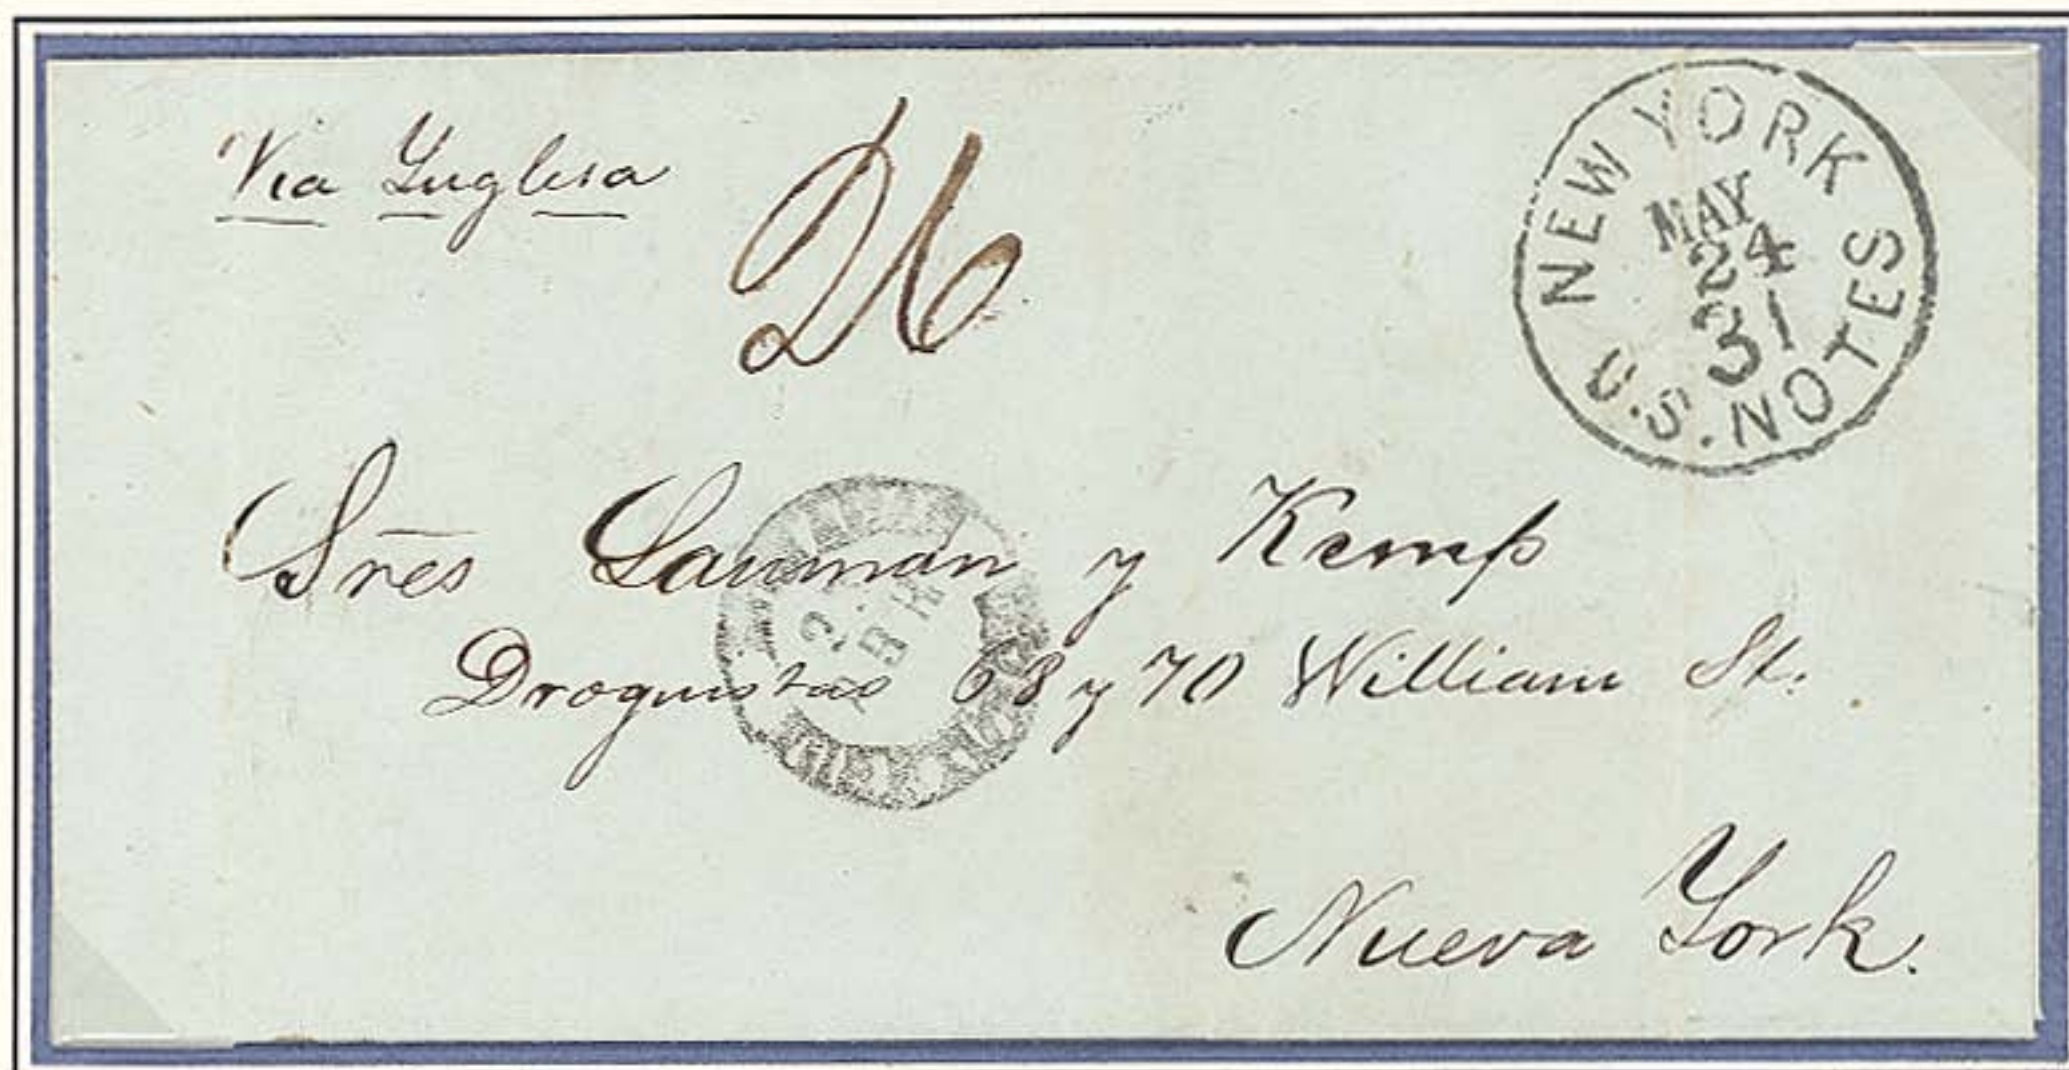 Via Inglesa
26
NEW YORK
MAY
24
31
U.S. NOTES
Sres Lanman y Kemp
Droguistas 68 y 70 William St.
Nueva York.